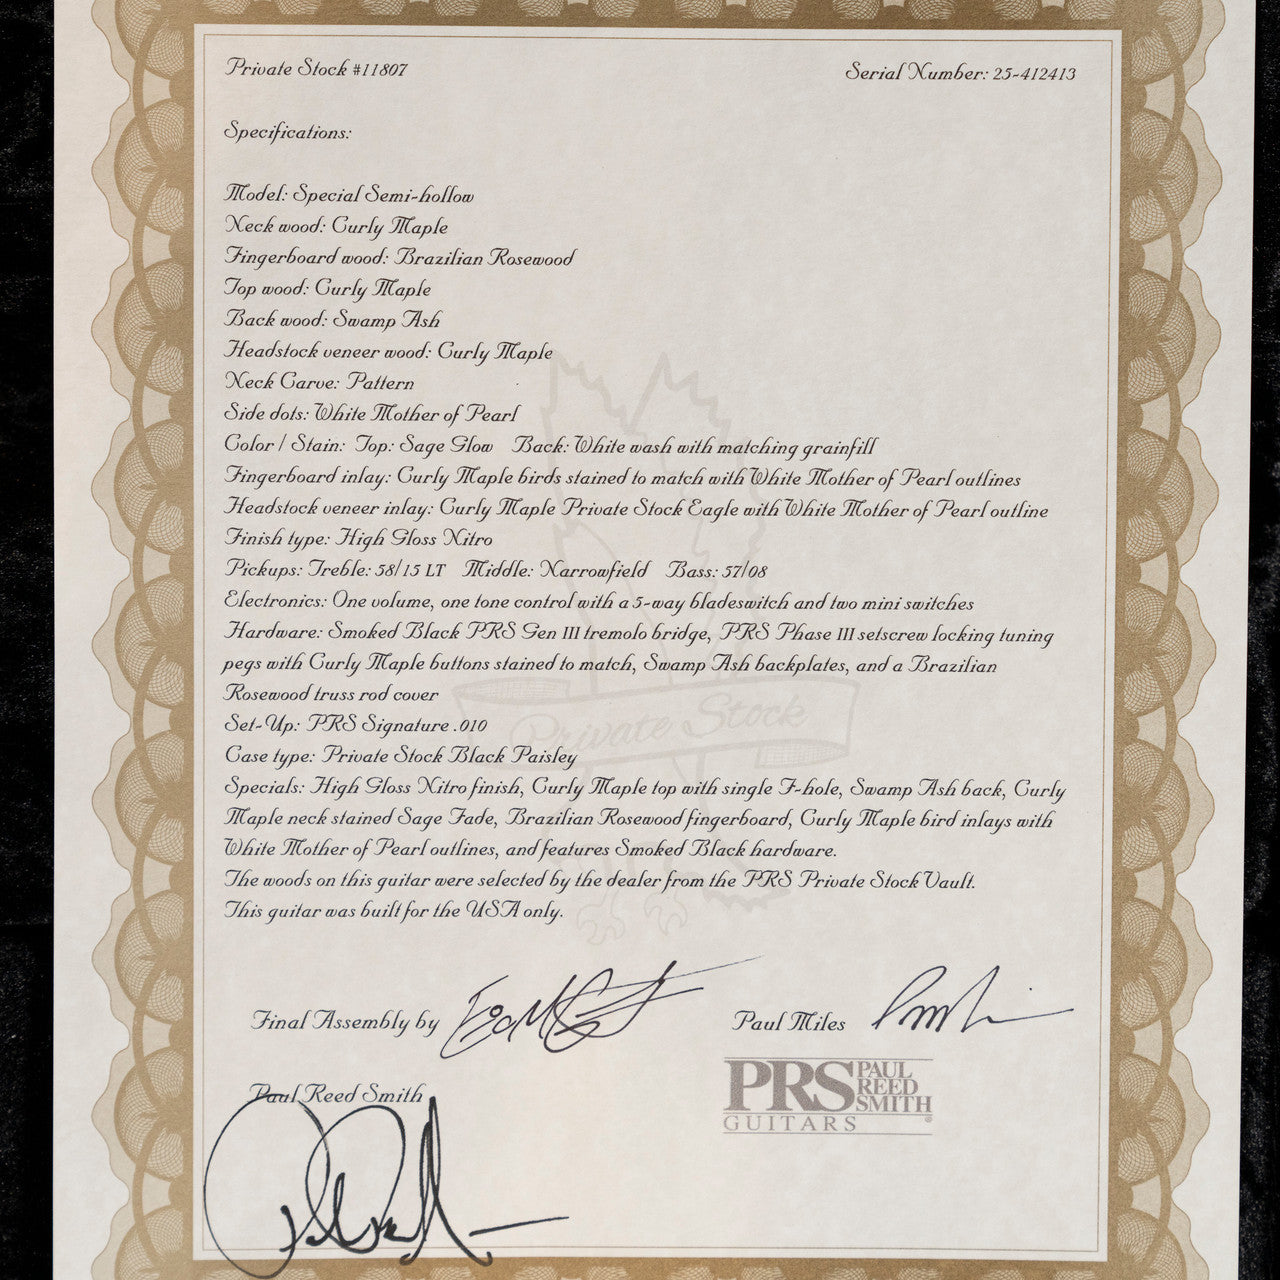 Private Stock #11807
Serial Number: 25-412413
Specifications:
Model: Special Semi-hollow
Neck wood: Curly Maple
Fingerboard wood: Brazilian Rosewood
Top wood: Curly Maple
Back wood: Swamp Ash
Headstock veneer wood: Curly Maple
Neck Carve: Pattern
Side dots: White Mother of Pearl
Color / Stain: Top: Sage Glow Back: White wash with matching grainfill
Fingerboard inlay: Curly Maple birds stained to match with White Mother of Pearl outlines
Headstock veneer inlay: Curly Maple Private Stock Eagle with White Mother of Pearl outline
Finish type: High Gloss Nitro
Pickups: Treble: 58/15 LT Middle: Narrowfield Bass: 57/08
Electronics: One volume, one tone control with a 5-way bladeswitch and two mini switches
Hardware: Smoked Black PRS Gen III tremolo bridge, PRS Phase III setscrew locking tuning
pegs with Curly Maple buttons stained to match, Swamp Ash backplates, and a Brazilian
Rosewood truss rod cover
Set-Up: PRS Signature .010
Case type: Private Stock Black Paisley
Specials: High Gloss Nitro finish, Curly Maple top with single F-hole, Swamp Ash back, Curly
Maple neck stained Sage Fade, Brazilian Rosewood fingerboard, Curly Maple bird inlays with
White Mother of Pearl outlines, and features Smoked Black hardware.
The woods on this guitar were selected by the dealer from the PRS Private Stock Vault.
This guitar was built for the USA only.
Private Stock
Final Assembly by
Paul Miles
Paul Reed Smith
PRS PAUL REED SMITH
GUITARS